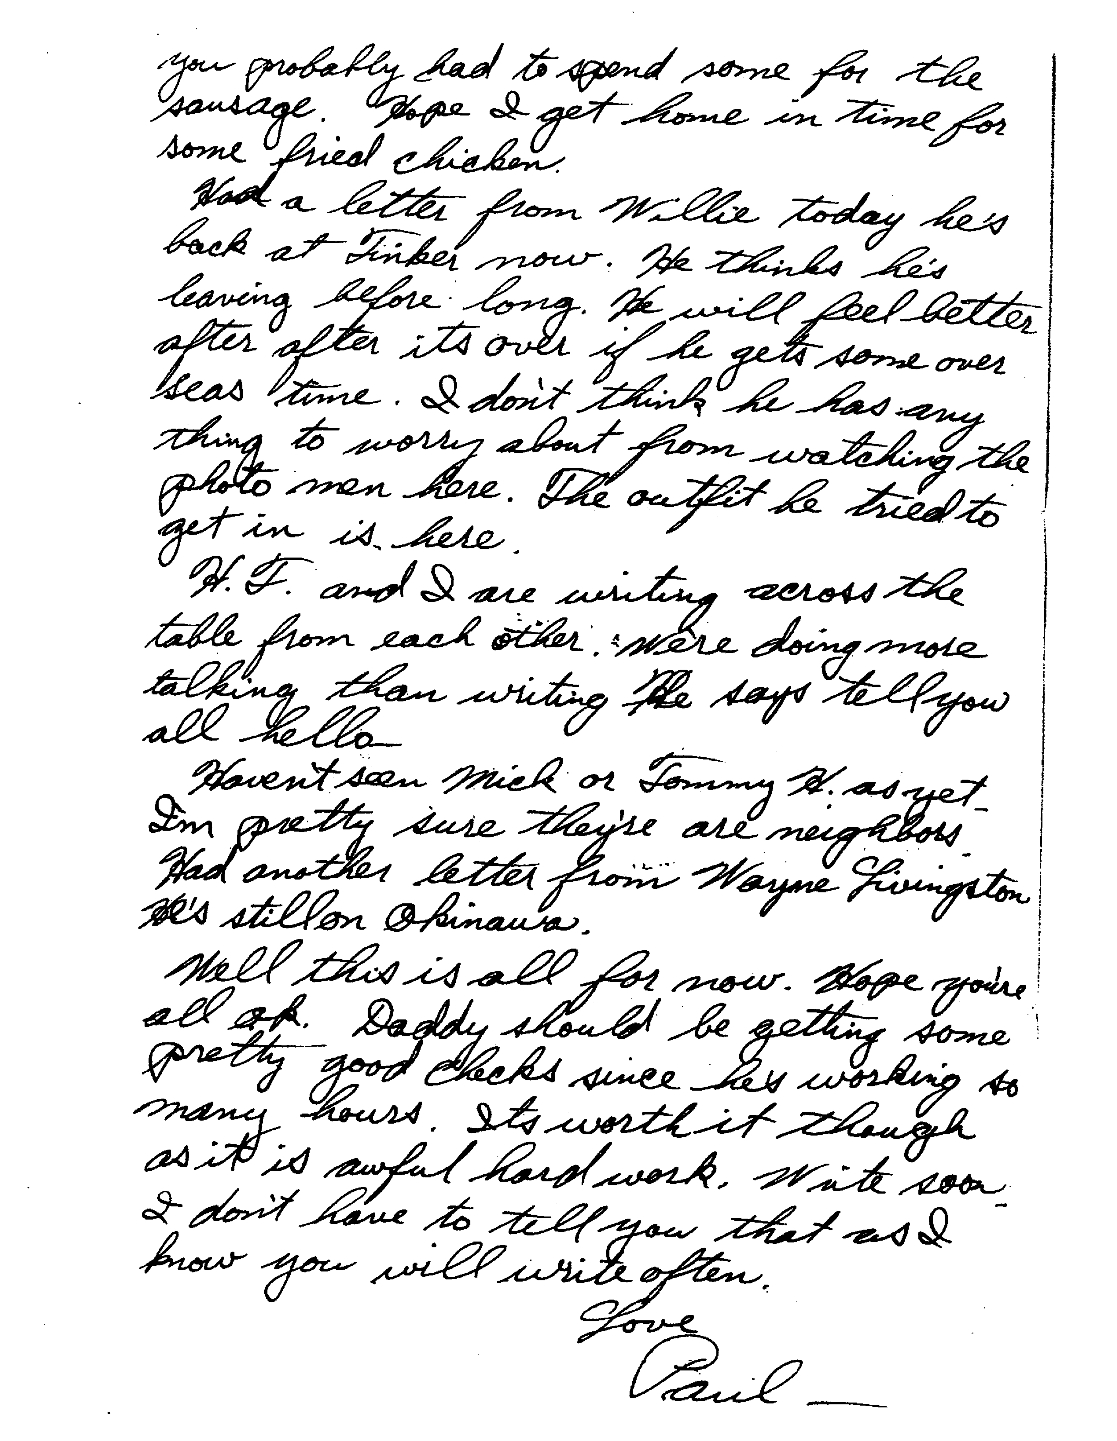 you probably had to spend some for the
sausage. Hope I get home in time for
some fried chicken.
Had a letter from Willie today he's
back at Tinker now. He thinks he's
leaving before long. He will feel better
after after its over if he gets some over
seas time. I don't think he has any
thing to worry about from watching the
photo men here. The outfit he tried to
get in is here.
H.T. and I are writing across the
table from each other. We're doing more
talking than writing He says tell you
all hello
Haven't seen Mick or Tommy H. as yet
I'm pretty sure they're are neighbors
Had another letter from Wayne Livingston
He's still on Okinawa.
Well this is all for now. Hope you're
all ok. Daddy should be getting some
pretty good checks since he's working so
many hours. Its worth it though
as it is awful hard work. Write soon
I don't have to tell you that as I
know you will write often.
Love
Paul —